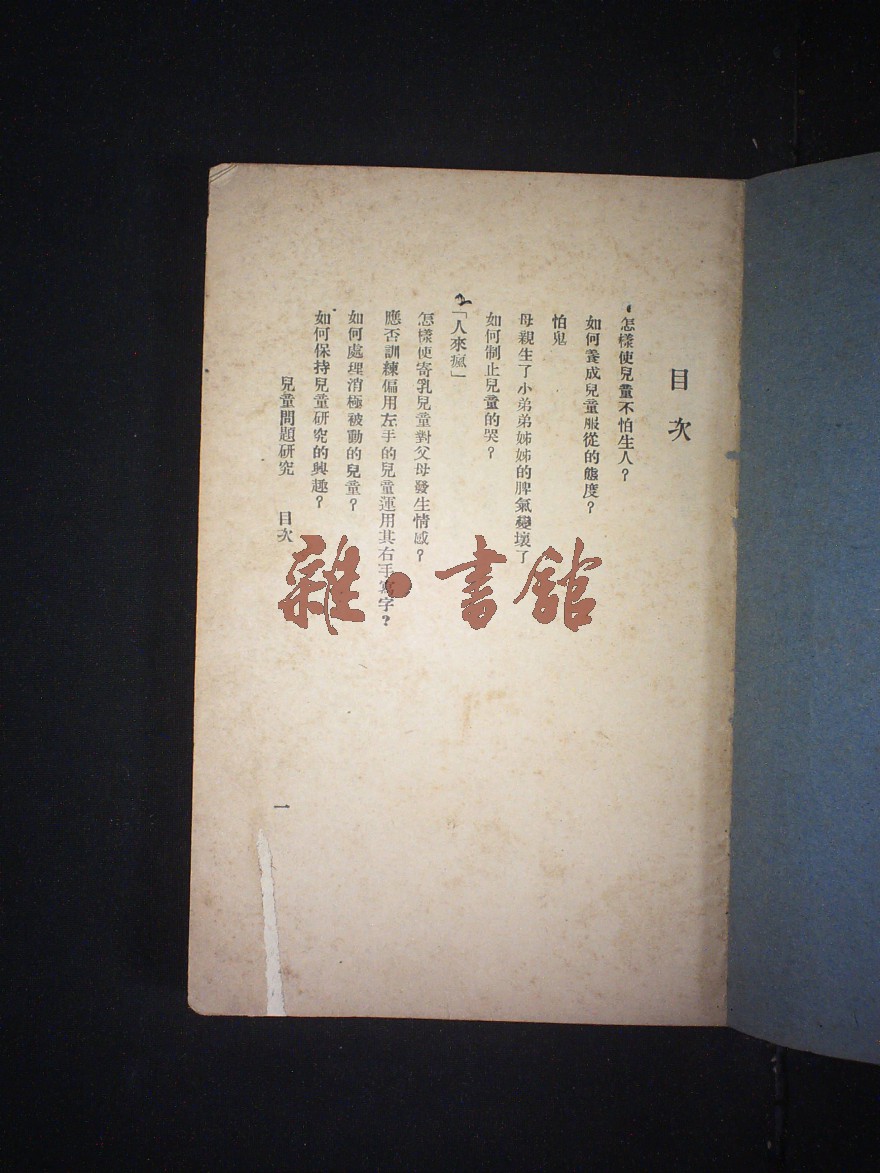 目次
怎樣使兒童不怕生人？
如何養成兒童服從的態度？
怕鬼
母親生了小弟弟姊姊的脾氣變壞了
如何制止兒童的哭？
「人來瘋」
怎樣使寄乳兒童對父母發生情感？
應否訓練偏用左手的兒童運用其右手寫字？
如何處理消極被動的兒童？
如何保持兒童研究的興趣？
兒童問題研究　目次
一
雜·書館